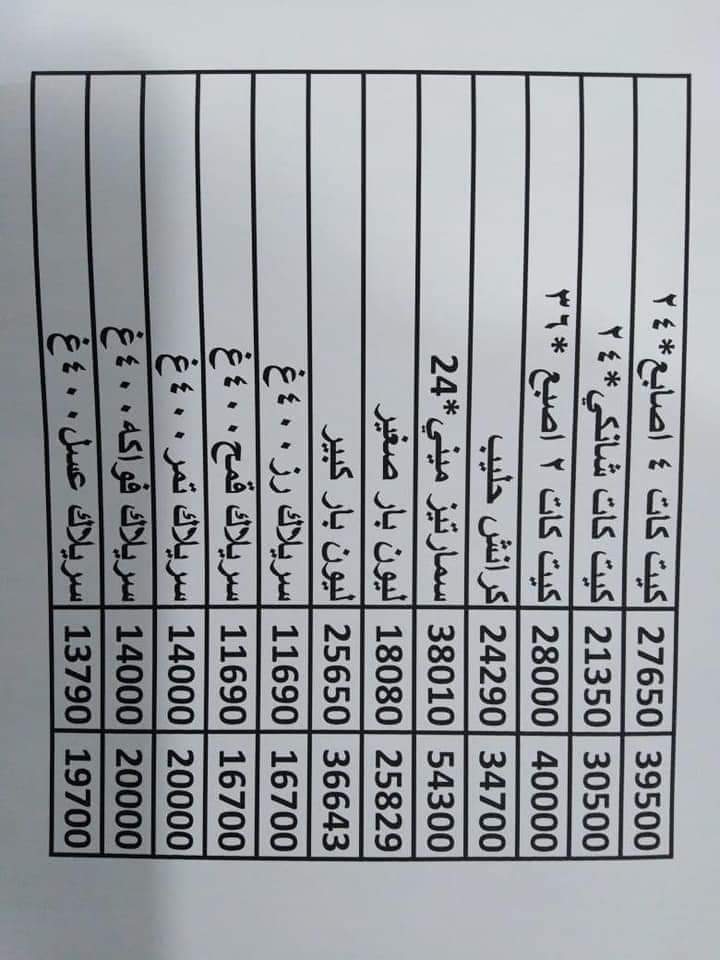 كيت كات ٤ اصابع*٢٤ 27650 39500
كيت كات شانكي*٢٤ 21350 30500
كيت كات ٢ اصبع *٣٦ 28000 40000
كرانش حليب 24290 34700
سمارتيز ميني*24 38010 54300
ليون بار صغير 18080 25829
ليون بار كبير 25650 36643
سريلاك رز ٤٠٠غ 11690 16700
سريلاك قمح ٤٠٠غ 11690 16700
سريلاك تمر ٤٠٠غ 14000 20000
سريلاك فواكه ٤٠٠غ 14000 20000
سريلاك عسل ٤٠٠غ 13790 19700